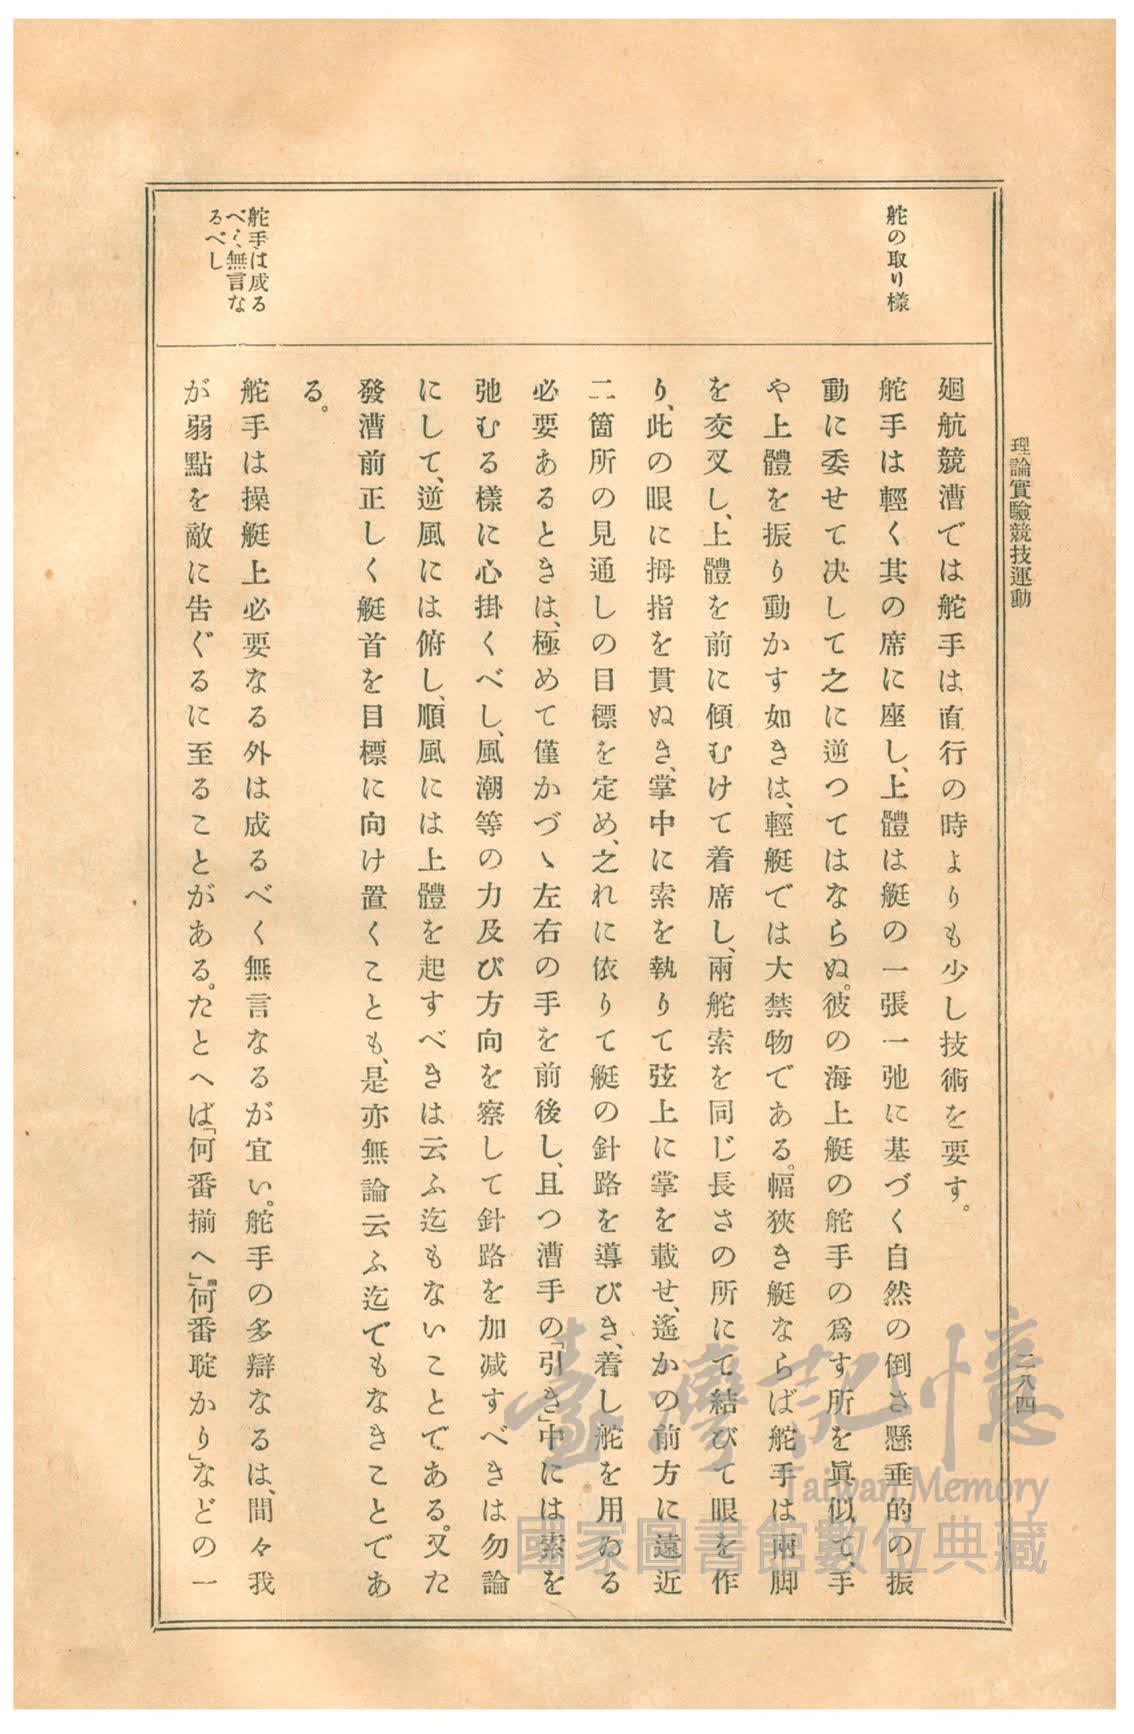 理論實驗競技運動
二八四
舵の取り樣
舵手は成る
べく無言な
るべし
廻航競漕では舵手は直行の時よりも少し技術を要す。
舵手は輕く其の席に座し、上體は艇の一張一弛に基づく自然の倒さ懸垂的の振
動に委せて决して之に逆つてはならぬ。彼の海上艇の舵手の爲す所を眞似て、手
や上體を振り動かす如きは、輕艇では大禁物である。幅狹き艇ならば舵手は兩脚
を交叉し、上體を前に傾むけて着席し、兩舵索を同じ長さの所にて結びて眼を作
り、此の眼に拇指を貫ぬき、掌中に索を執りて弦上に掌を載せ、遙かの前方に遠近
二箇所の見通しの目標を定め、之れに依りて艇の針路を導びき、着し舵を用ゐる
必要あるときは、極めて僅かづゝ左右の手を前後し、且つ漕手の「引き」中には索を
弛むる樣に心掛くべし、風潮等の力及び方向を察して針路を加减すべきは勿論
にして、逆風には俯し、順風には上體を起すべきは云ふ迄もないことである。又た
發漕前正しく艇首を目標に向け置くことも、是亦無論云ふ迄でもなきことであ
る。
舵手は操艇上必要なる外は成るべく無言なるが宜い。舵手の多辯なるは、間々我
が弱點を敵に告ぐるに至ることがある。たとへば「何番揃へ」「何番聢かり」などの一
臺灣記憶
Taiwan Memory
國家圖書館數位典藏